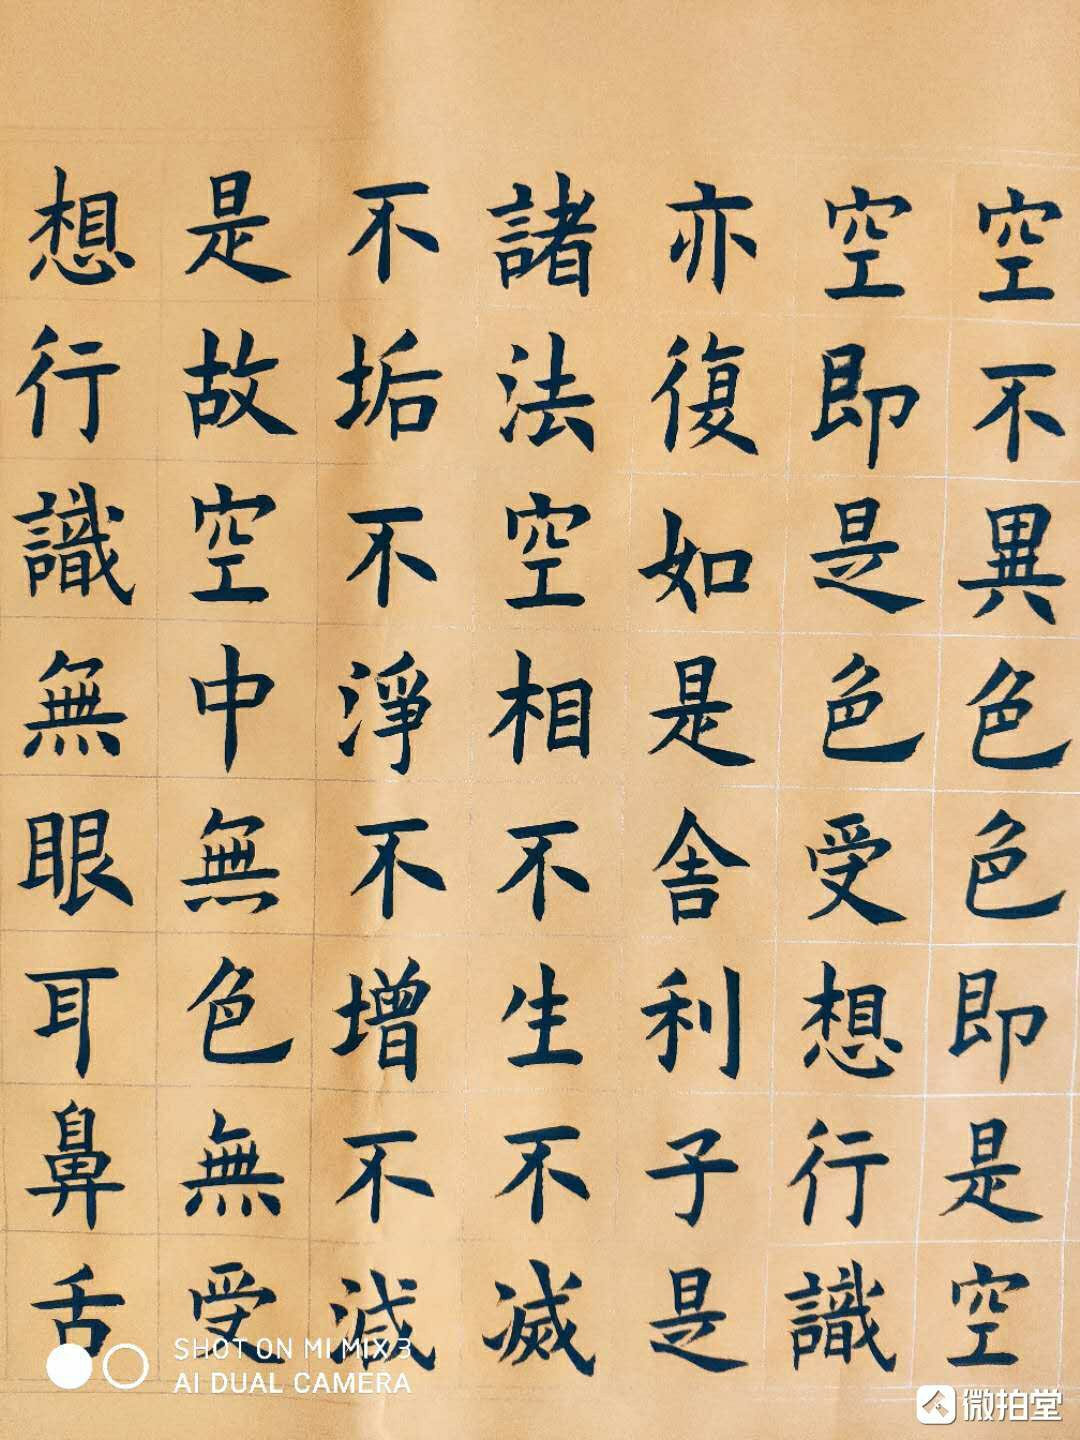 空不異色色即是空
空即是色受想行識
亦復如是舍利子是
諸法空相不生不滅
不垢不淨不增不減
是故空中無色無受
想行識無眼耳鼻舌
SHOT ON MI MIX 3
AI DUAL CAMERA
微拍堂